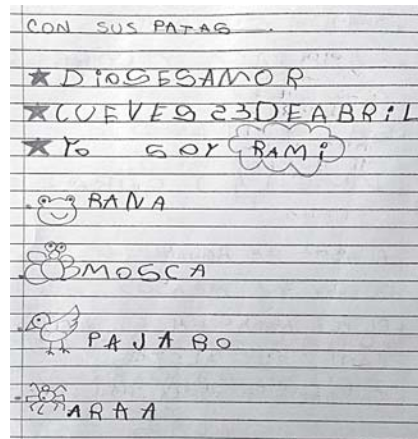 CON SUS PATAS.
DiOSESAMOR
CUEVES 23DEABRiL
Yo SOY RAMi
RANA
MOSCA
PAJARO
ARAA